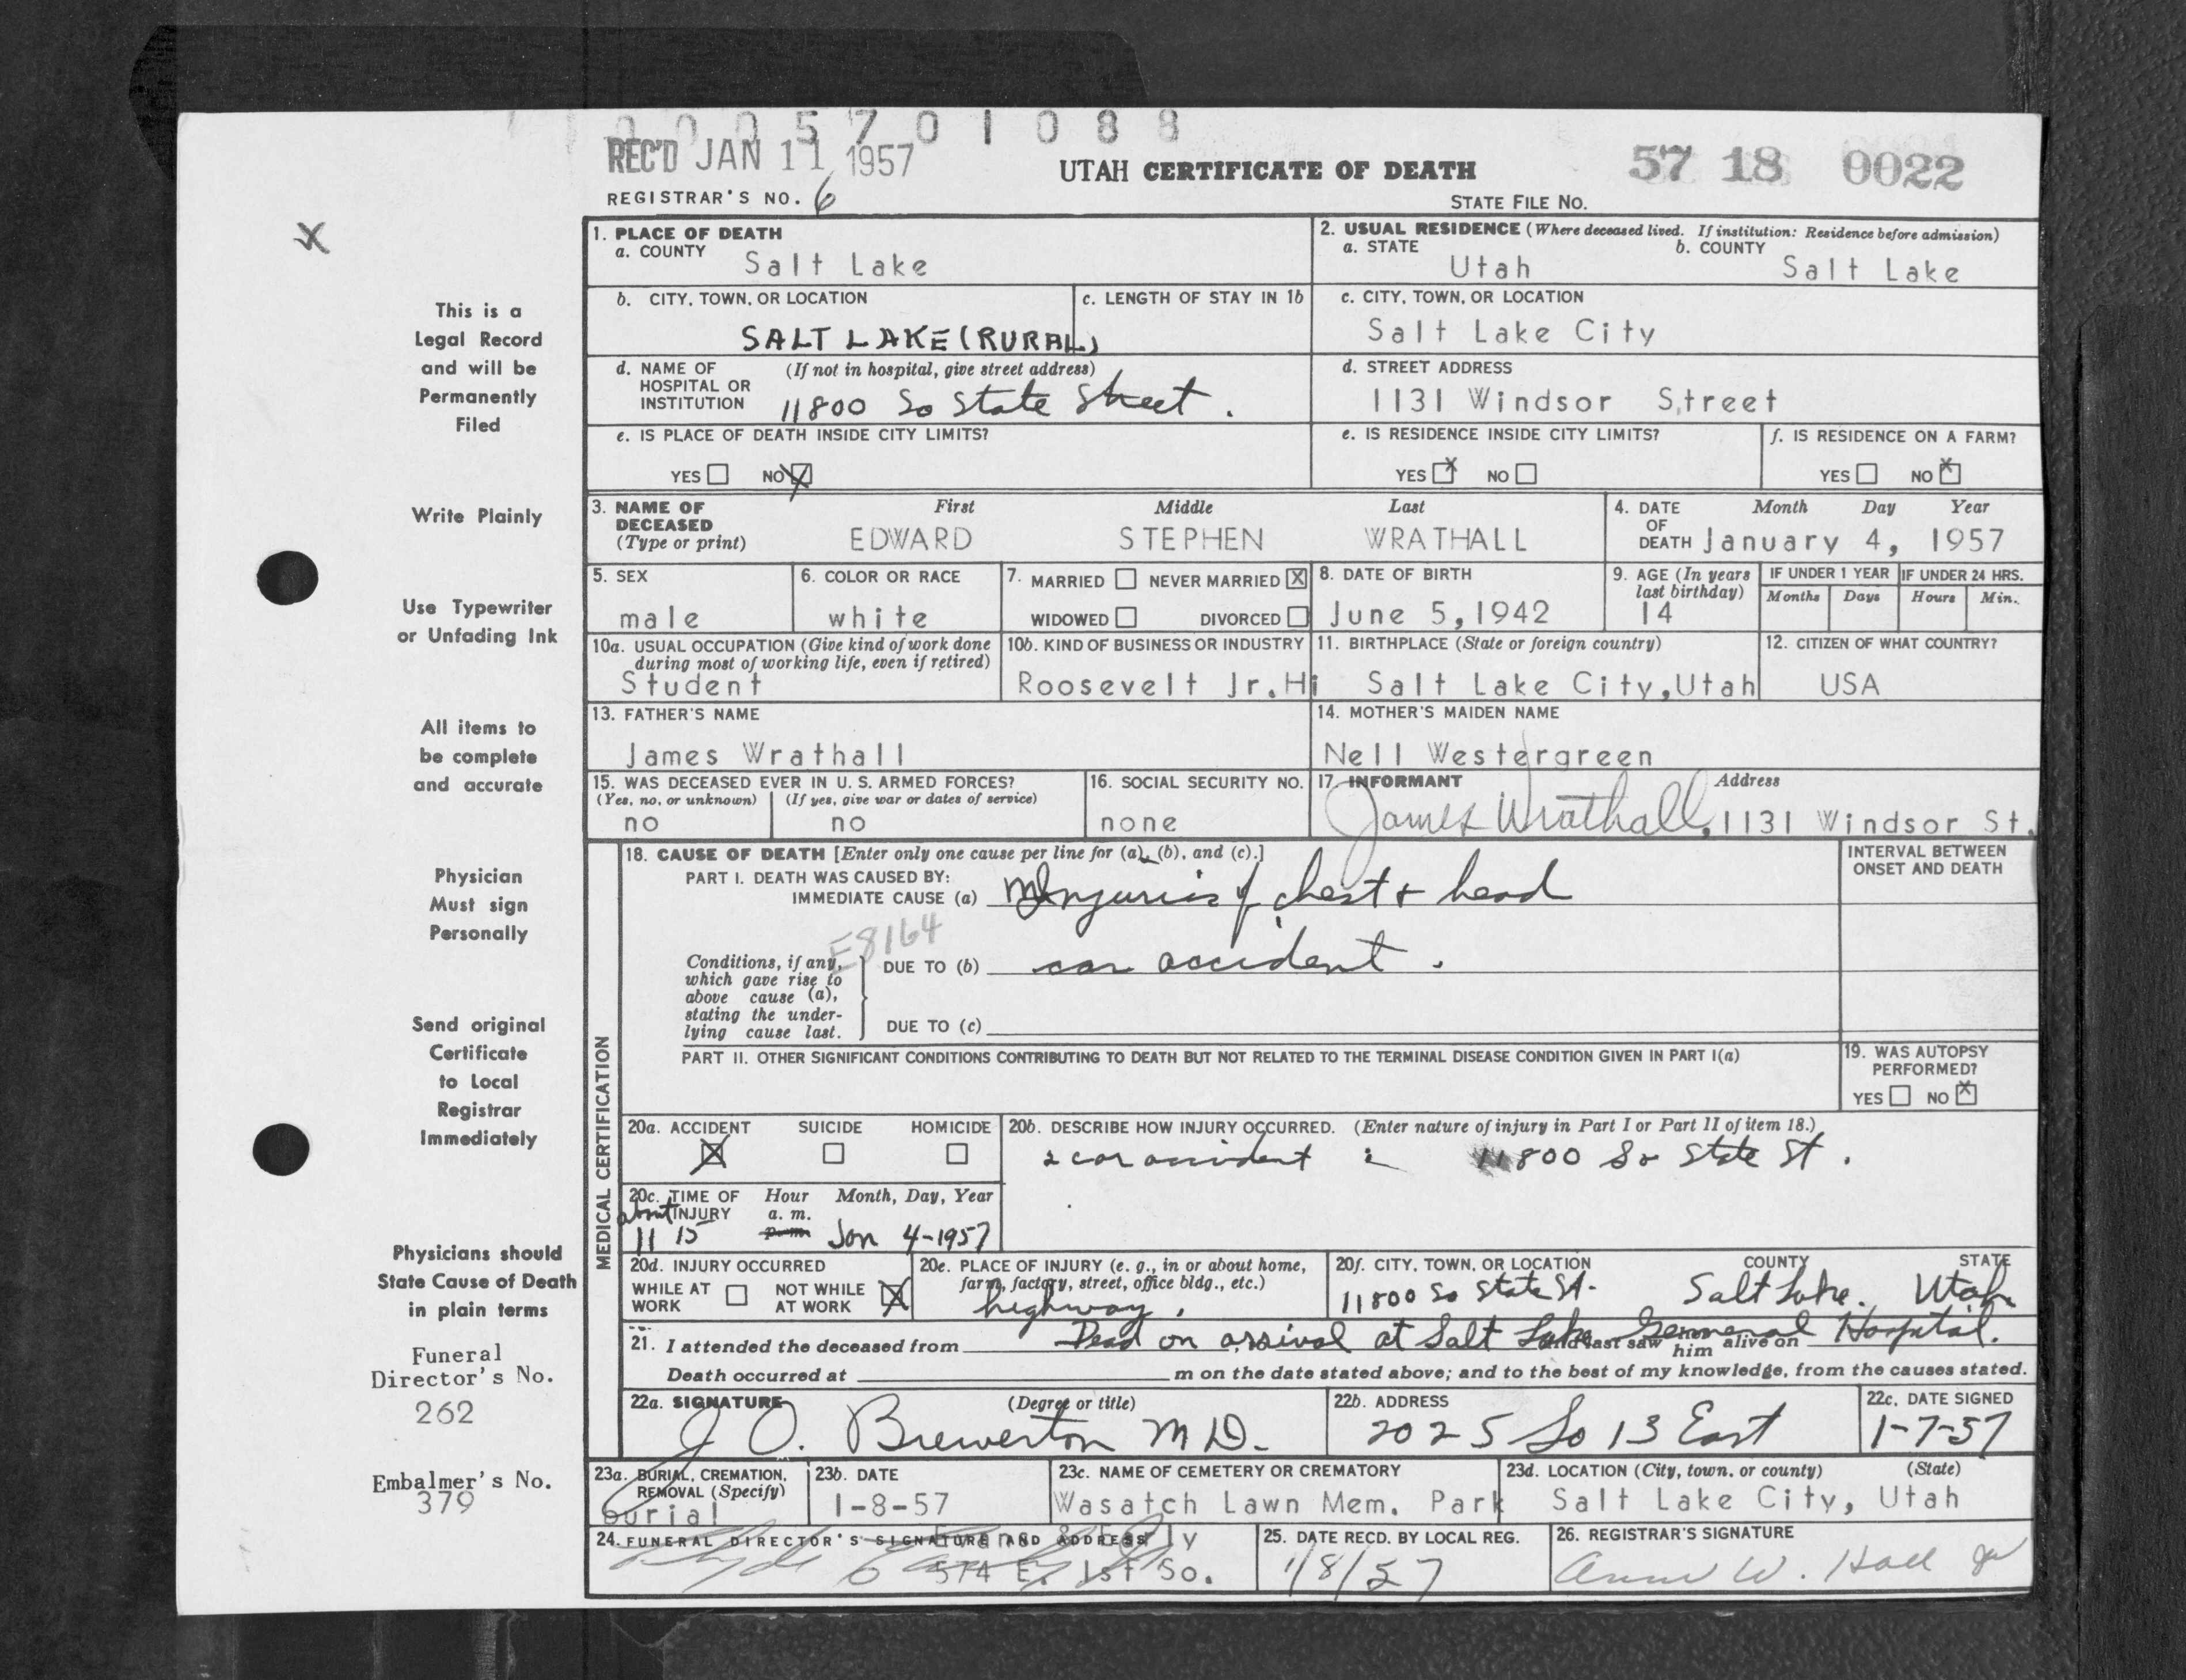 0005701088
REC'D JAN 11 1957
UTAH CERTIFICATE OF DEATH
57 18 0022
REGISTRAR'S NO. 6
STATE FILE NO.
x
This is a
Legal Record
and will be
Permanently
Filed
Write Plainly
Use Typewriter
or Unfading Ink
All items to
be complete
and accurate
Physician
Must sign
Personally
Send original
Certificate
to Local
Registrar
Immediately
Physicians should
State Cause of Death
in plain terms
Funeral
Director's No.
262
Embalmer's No.
379
1. PLACE OF DEATH
a. COUNTY Salt Lake
2. USUAL RESIDENCE (Where deceased lived. If institution: Residence before admission)
a. STATE Utah b. COUNTY Salt Lake
b. CITY, TOWN, OR LOCATION SALT LAKE (RURAL)
c. LENGTH OF STAY IN 1b
c. CITY, TOWN, OR LOCATION
Salt Lake City
d. NAME OF HOSPITAL OR INSTITUTION (If not in hospital, give street address)
11800 So State Street.
d. STREET ADDRESS
1131 Windsor Street
e. IS PLACE OF DEATH INSIDE CITY LIMITS?
YES NO X
e. IS RESIDENCE INSIDE CITY LIMITS?
YES X NO
f. IS RESIDENCE ON A FARM?
YES NO X
3. NAME OF DECEASED (Type or print)
First Middle Last
EDWARD STEPHEN WRATHALL
4. DATE OF DEATH Month Day Year
January 4, 1957
5. SEX
male
6. COLOR OR RACE
white
7. MARRIED NEVER MARRIED X
WIDOWED DIVORCED
8. DATE OF BIRTH
June 5, 1942
9. AGE (In years last birthday)
14
IF UNDER 1 YEAR
Months Days
IF UNDER 24 HRS.
Hours Min.
10a. USUAL OCCUPATION (Give kind of work done during most of working life, even if retired)
Student
10b. KIND OF BUSINESS OR INDUSTRY
Roosevelt Jr.Hi
11. BIRTHPLACE (State or foreign country)
Salt Lake City,Utah
12. CITIZEN OF WHAT COUNTRY?
USA
13. FATHER'S NAME
James Wrathall
14. MOTHER'S MAIDEN NAME
Nell Westergreen
15. WAS DECEASED EVER IN U. S. ARMED FORCES?
(Yes, no, or unknown) (If yes, give war or dates of service)
no no
16. SOCIAL SECURITY NO.
none
17. INFORMANT Address
James Wrathall, 1131 Windsor St.
MEDICAL CERTIFICATION
18. CAUSE OF DEATH [Enter only one cause per line for (a), (b), and (c).]
INTERVAL BETWEEN
ONSET AND DEATH
PART I. DEATH WAS CAUSED BY:
IMMEDIATE CAUSE (a) Injuries of chest + head
E8164
Conditions, if any, which gave rise to above cause (a), stating the underlying cause last.
DUE TO (b) car accident.
DUE TO (c)
PART II. OTHER SIGNIFICANT CONDITIONS CONTRIBUTING TO DEATH BUT NOT RELATED TO THE TERMINAL DISEASE CONDITION GIVEN IN PART I(a)
19. WAS AUTOPSY PERFORMED?
YES NO X
20a. ACCIDENT X SUICIDE HOMICIDE
20b. DESCRIBE HOW INJURY OCCURRED. (Enter nature of injury in Part I or Part II of item 18.)
2 car accident 11800 So State St.
20c. TIME OF INJURY Hour Month, Day, Year
about 11 15 a. m. p. m. Jan 4-1957
20d. INJURY OCCURRED
WHILE AT WORK NOT WHILE AT WORK X
20e. PLACE OF INJURY (e. g., in or about home, farm, factory, street, office bldg., etc.)
highway.
20f. CITY, TOWN, OR LOCATION COUNTY STATE
11800 So State St. Salt Lake. Utah
21. I attended the deceased from Dead on arrival at Salt Lake General Hospital. and last saw him alive on
Death occurred at m on the date stated above; and to the best of my knowledge, from the causes stated.
22a. SIGNATURE (Degree or title)
J O. Brewerton M D.
22b. ADDRESS
2025 So 13 East
22c. DATE SIGNED
1-7-57
23a. BURIAL, CREMATION, REMOVAL (Specify)
burial
23b. DATE
1-8-57
23c. NAME OF CEMETERY OR CREMATORY
Wasatch Lawn Mem. Park
23d. LOCATION (City, town, or county) (State)
Salt Lake City, Utah
24. FUNERAL DIRECTOR'S SIGNATURE AND ADDRESS
574 E. 1st So.
25. DATE RECD. BY LOCAL REG.
1/8/57
26. REGISTRAR'S SIGNATURE
W. Hall